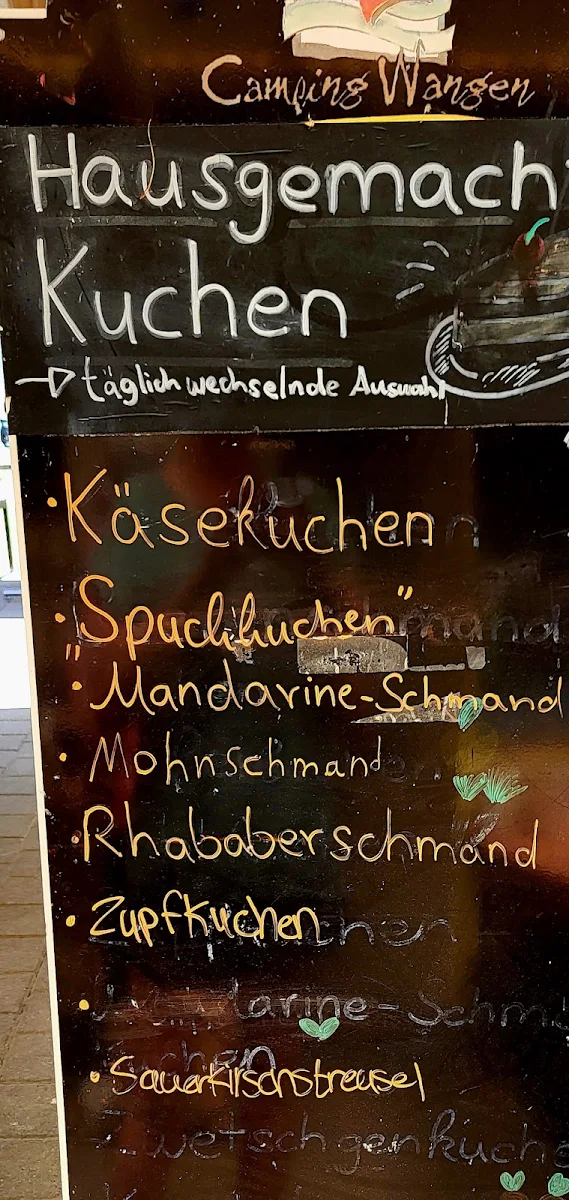 Camping Wangen
Hausgemach
Kuchen
täglich wechselnde Auswahl
• Käsekuchen
• Spuchkuchen"
"• Mandarine-Schmand
• Mohnschmand
• Rhababerschmand
• Zupfkuchen
• darine-Schm
chen
• Sauerkirschstreusel
Zwetschgenkuche